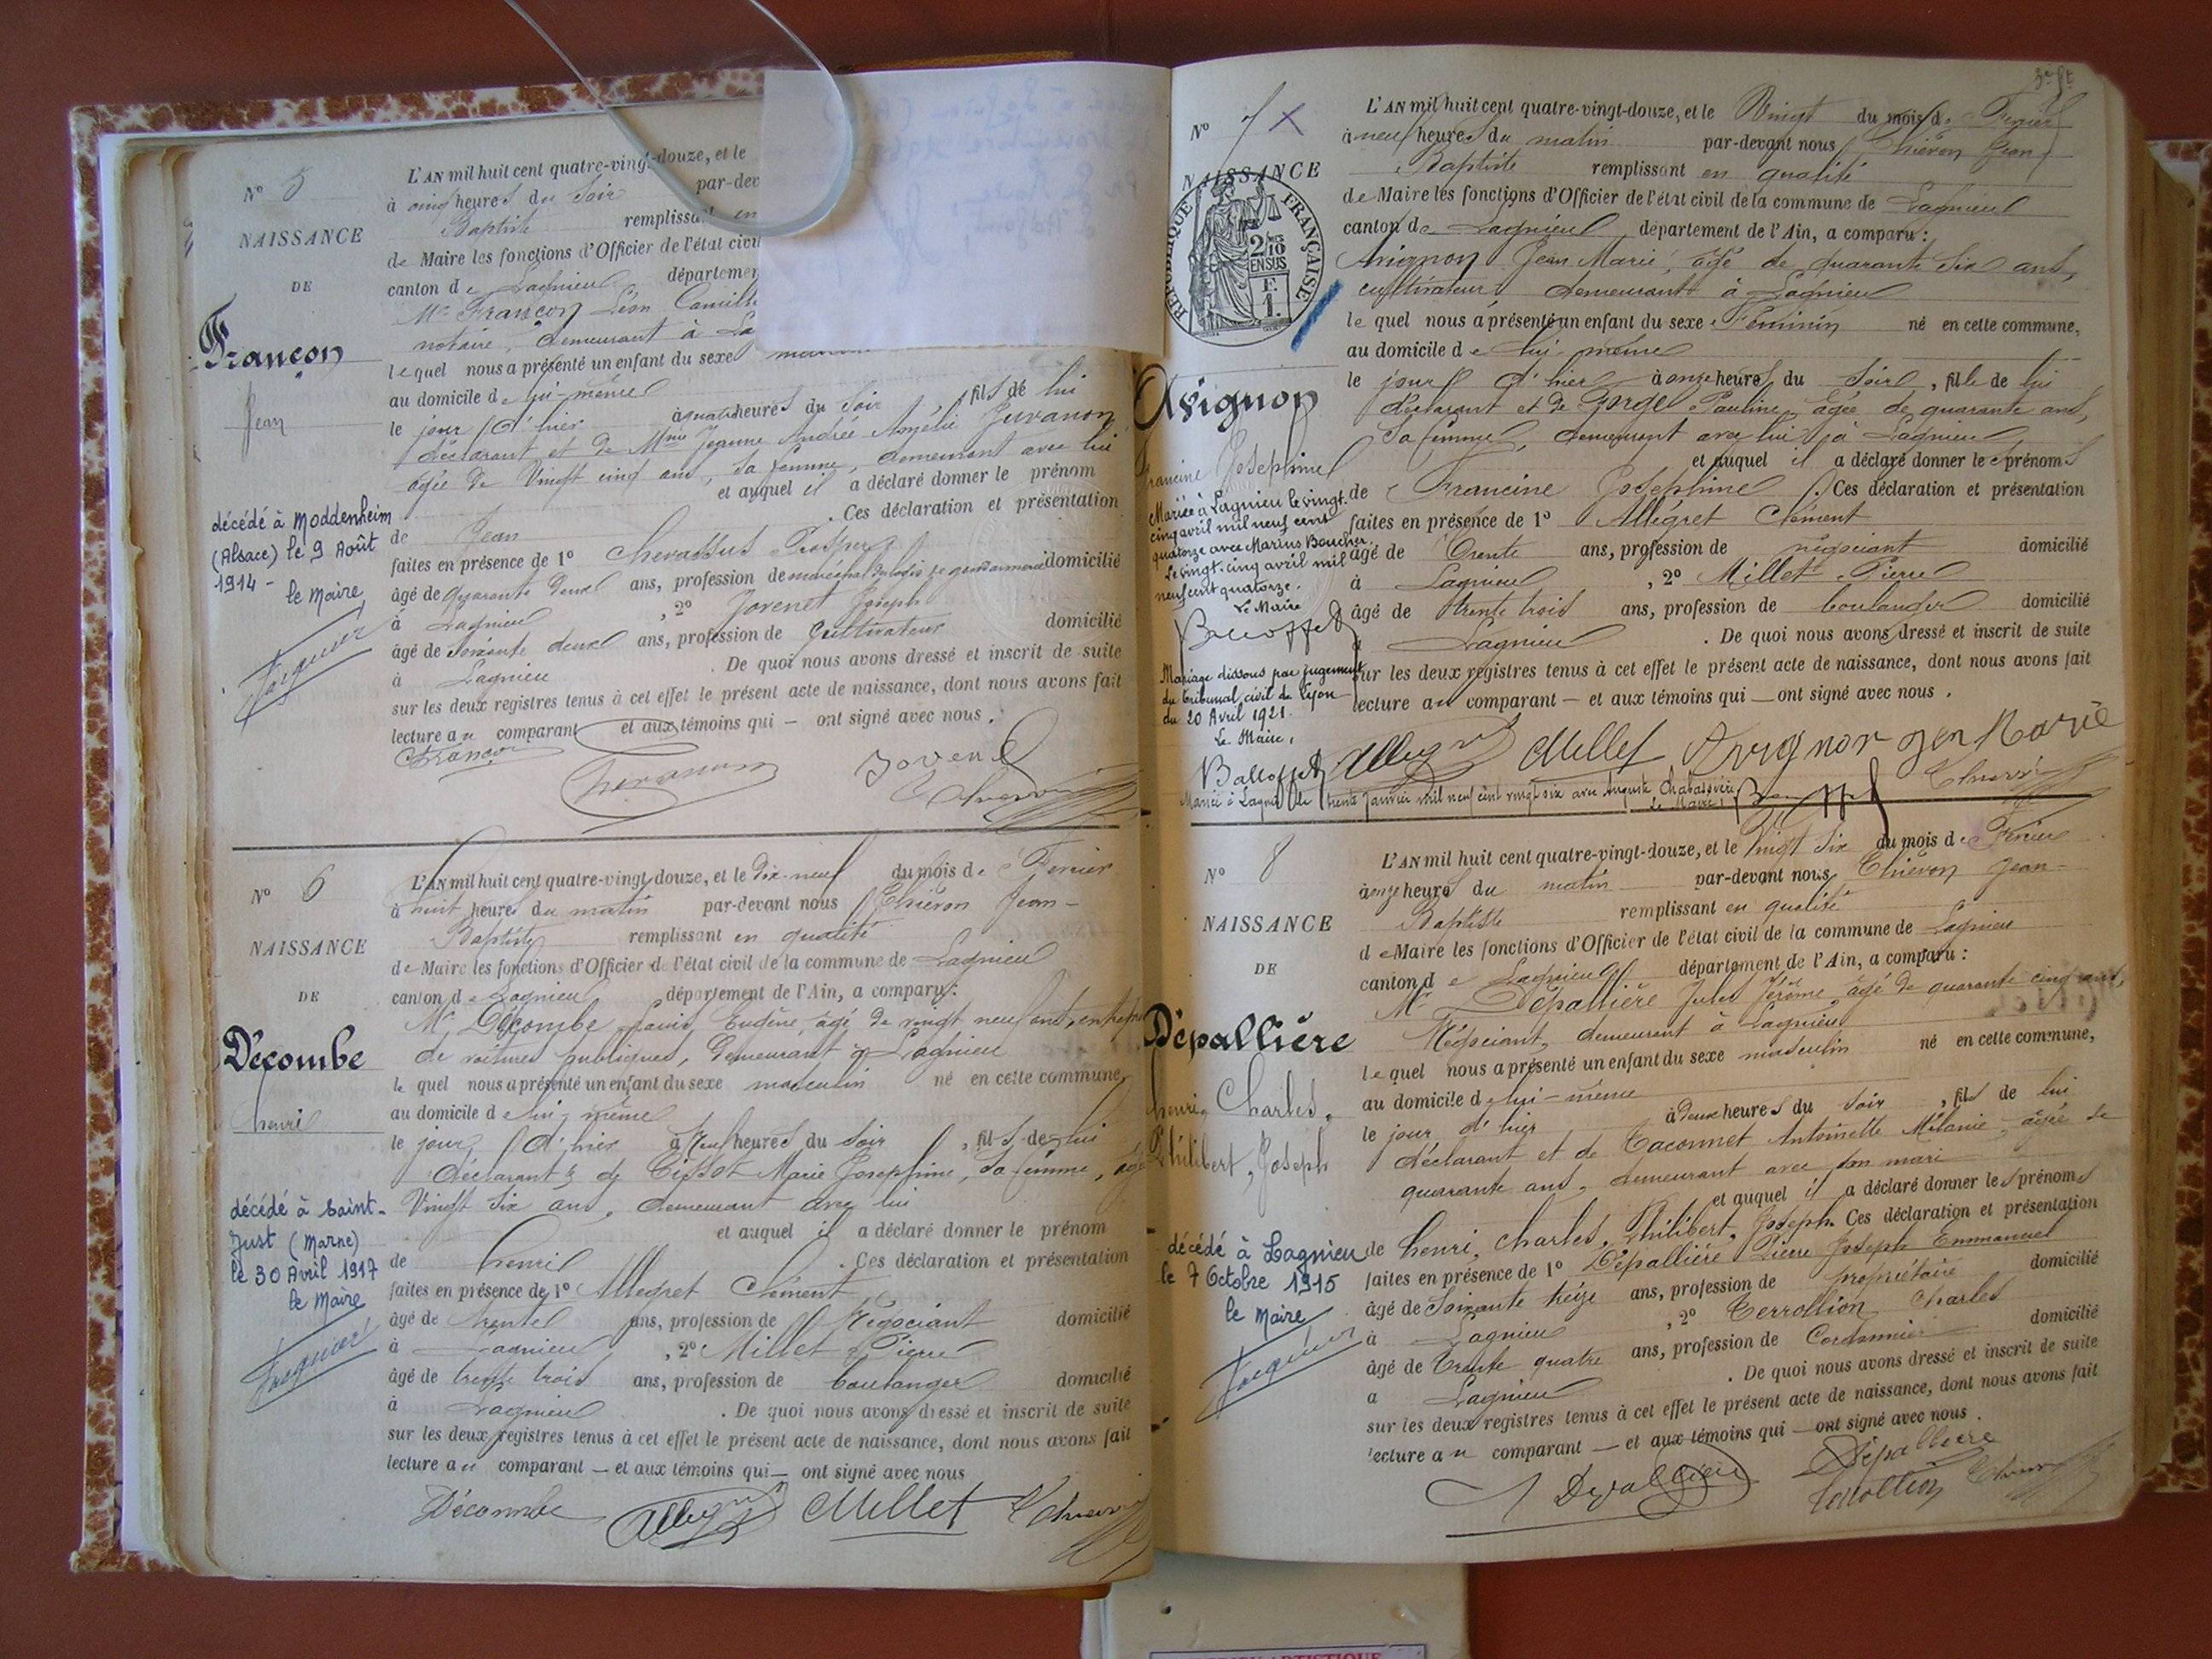 N° 5
NAISSANCE
DE
Françon
Jean
décédé à Moddenheim
(Alsace) le 9 Août
1914 -
le Maire
Jacquier
L'AN mil huit cent quatre-vingt-douze, et le
à cinq heures du soir par-dev
Baptiste remplissant en
de Maire les fonctions d'Officier de l'état civil
canton de Lagnieu départemen
Mr Françon Léon Camille
notaire, demeurant à La
lequel nous a présenté un enfant du sexe
au domicile de lui-même
le jour d'hier à quatre heures du soir, fils de lui
déclarant et de Mme Jeanne Andrée Amélie Juvanon
âgée de Vingt cinq ans, sa femme, demeurant avec lui
et auquel il a déclaré donner le prénom
de Jean . Ces déclaration et présentation
faites en présence de 1° Chevassus Prosper
âgé de quarante deux ans, profession de maréchal des logis de gendarmerie domicilié
à Lagnieu , 2° Jovenet Joseph
âgé de soixante deux ans, profession de Cultivateur domicilié
à Lagnieu . De quoi nous avons dressé et inscrit de suite
sur les deux registres tenus à cet effet le présent acte de naissance, dont nous avons fait
lecture au comparant et aux témoins qui — ont signé avec nous .
Françon
N° 6
NAISSANCE
DE
Décombe
henri
décédé à Saint-
Just (Marne)
le 30 Avril 1917
le Maire
Jacquier
L'AN mil huit cent quatre-vingt-douze, et le dix-neuf du mois de Fevrier
à huit heures du matin par-devant nous Thiévon Jean-
Baptiste remplissant en qualité
de Maire les fonctions d'Officier de l'état civil de la commune de Lagnieu
canton de Lagnieu département de l'Ain, a comparu :
Mr Décombe Louis Eugène, âgé de vingt neuf ans, entrepr
de voitures publiques, demeurant à Lagnieu
lequel nous a présenté un enfant du sexe masculin né en cette commune,
au domicile de lui-même
le jour d'hier à neuf heures du soir, fils de lui
déclarant & de Tissot Marie Josephine, sa femme, âgée
Vingt six ans, demeurant avec lui
et auquel il a déclaré donner le prénom
de henri . Ces déclaration et présentation
faites en présence de 1° Allegret Clément
âgé de trente ans, profession de Négociant domicilié
à Lagnieu , 2° Millet Pierre
âgé de trente trois ans, profession de boulanger domicilié
à Lagnieu . De quoi nous avons dressé et inscrit de suite
sur les deux registres tenus à cet effet le présent acte de naissance, dont nous avons fait
lecture au comparant — et aux témoins qui — ont signé avec nous
Décombe Allegret Millet Thiévon
N° 7 X
NAISSANCE
RÉPUBLIQUE FRANÇAISE
2/10 EN SUS
F. 1.
Avignon
Francine Josephine
Mariée à Lagnieu le vingt
cinq avril mil neuf cent
quatorze avec Marius Boucher
Le vingt-cinq avril mil
neuf cent quatorze.
Le Maire
Balloffet
Mariage dissous par jugement
du tribunal civil de Lyon
du 20 Avril 1921.
Le Maire,
Balloffet
L'AN mil huit cent quatre-vingt-douze, et le Vingt du mois de Fevrier
à neuf heures du matin par-devant nous Thiévon Jean
Baptiste remplissant en qualité
de Maire les fonctions d'Officier de l'état civil de la commune de Lagnieu
canton de Lagnieu département de l'Ain, a comparu :
Avignon Jean Marie, âgé de quarante six ans,
cultivateur demeurant à Lagnieu
lequel nous a présenté un enfant du sexe Féminin né en cette commune,
au domicile de lui-même
le jour d'hier à onze heures du soir, fille de lui
déclarant et de Pauline, âgée de quarante ans,
sa femme, demeurant avec lui à Lagnieu
et auquel il a déclaré donner les prénoms
de Francine Josephine . Ces déclaration et présentation
faites en présence de 1° Allégret Clément
âgé de Trente ans, profession de négociant domicilié
à Lagnieu , 2° Millet Pierre
âgé de trente trois ans, profession de boulanger domicilié
à Lagnieu . De quoi nous avons dressé et inscrit de suite
sur les deux registres tenus à cet effet le présent acte de naissance, dont nous avons fait
lecture au comparant — et aux témoins qui — ont signé avec nous .
Allegret Millet Avignon jen Marie
Thiévon
Mariée à Lagnieu le trente janvier mil neuf cent vingt six avec Auguste
Le Maire,
N° 8
NAISSANCE
DE
Dépallière
henri, Charles,
Philibert, Joseph
décédé à Lagnieu
le 7 Octobre 1915
le Maire
Jacquier
L'AN mil huit cent quatre-vingt-douze, et le Vingt Six du mois de Fevrier
à onze heures du matin par-devant nous Thiévon Jean-
Baptiste remplissant en qualité
de Maire les fonctions d'Officier de l'état civil de la commune de Lagnieu
canton de Lagnieu département de l'Ain, a comparu :
Mr Dépallière Jules Jérôme, âgé de quarante cinq ans,
Négociant, demeurant à Lagnieu
lequel nous a présenté un enfant du sexe masculin né en cette commune,
au domicile de lui-même
le jour d'hier à deux heures du soir, fils de lui
déclarant et de Taconnet Antoinette Mélanie, âgée de
quarante ans, demeurant avec son mari
et auquel il a déclaré donner les prénoms
de henri, Charles, Philibert, Joseph. Ces déclaration et présentation
faites en présence de 1° Dépallière Pierre Joseph Emmanuel
âgé de Soixante treize ans, profession de propriétaire domicilié
à Lagnieu , 2° Terrollion Charles
âgé de Trente quatre ans, profession de Cordonnier domicilié
à Lagnieu . De quoi nous avons dressé et inscrit de suite
sur les deux registres tenus à cet effet le présent acte de naissance, dont nous avons fait
lecture au comparant — et aux témoins qui — ont signé avec nous .
Dépallière